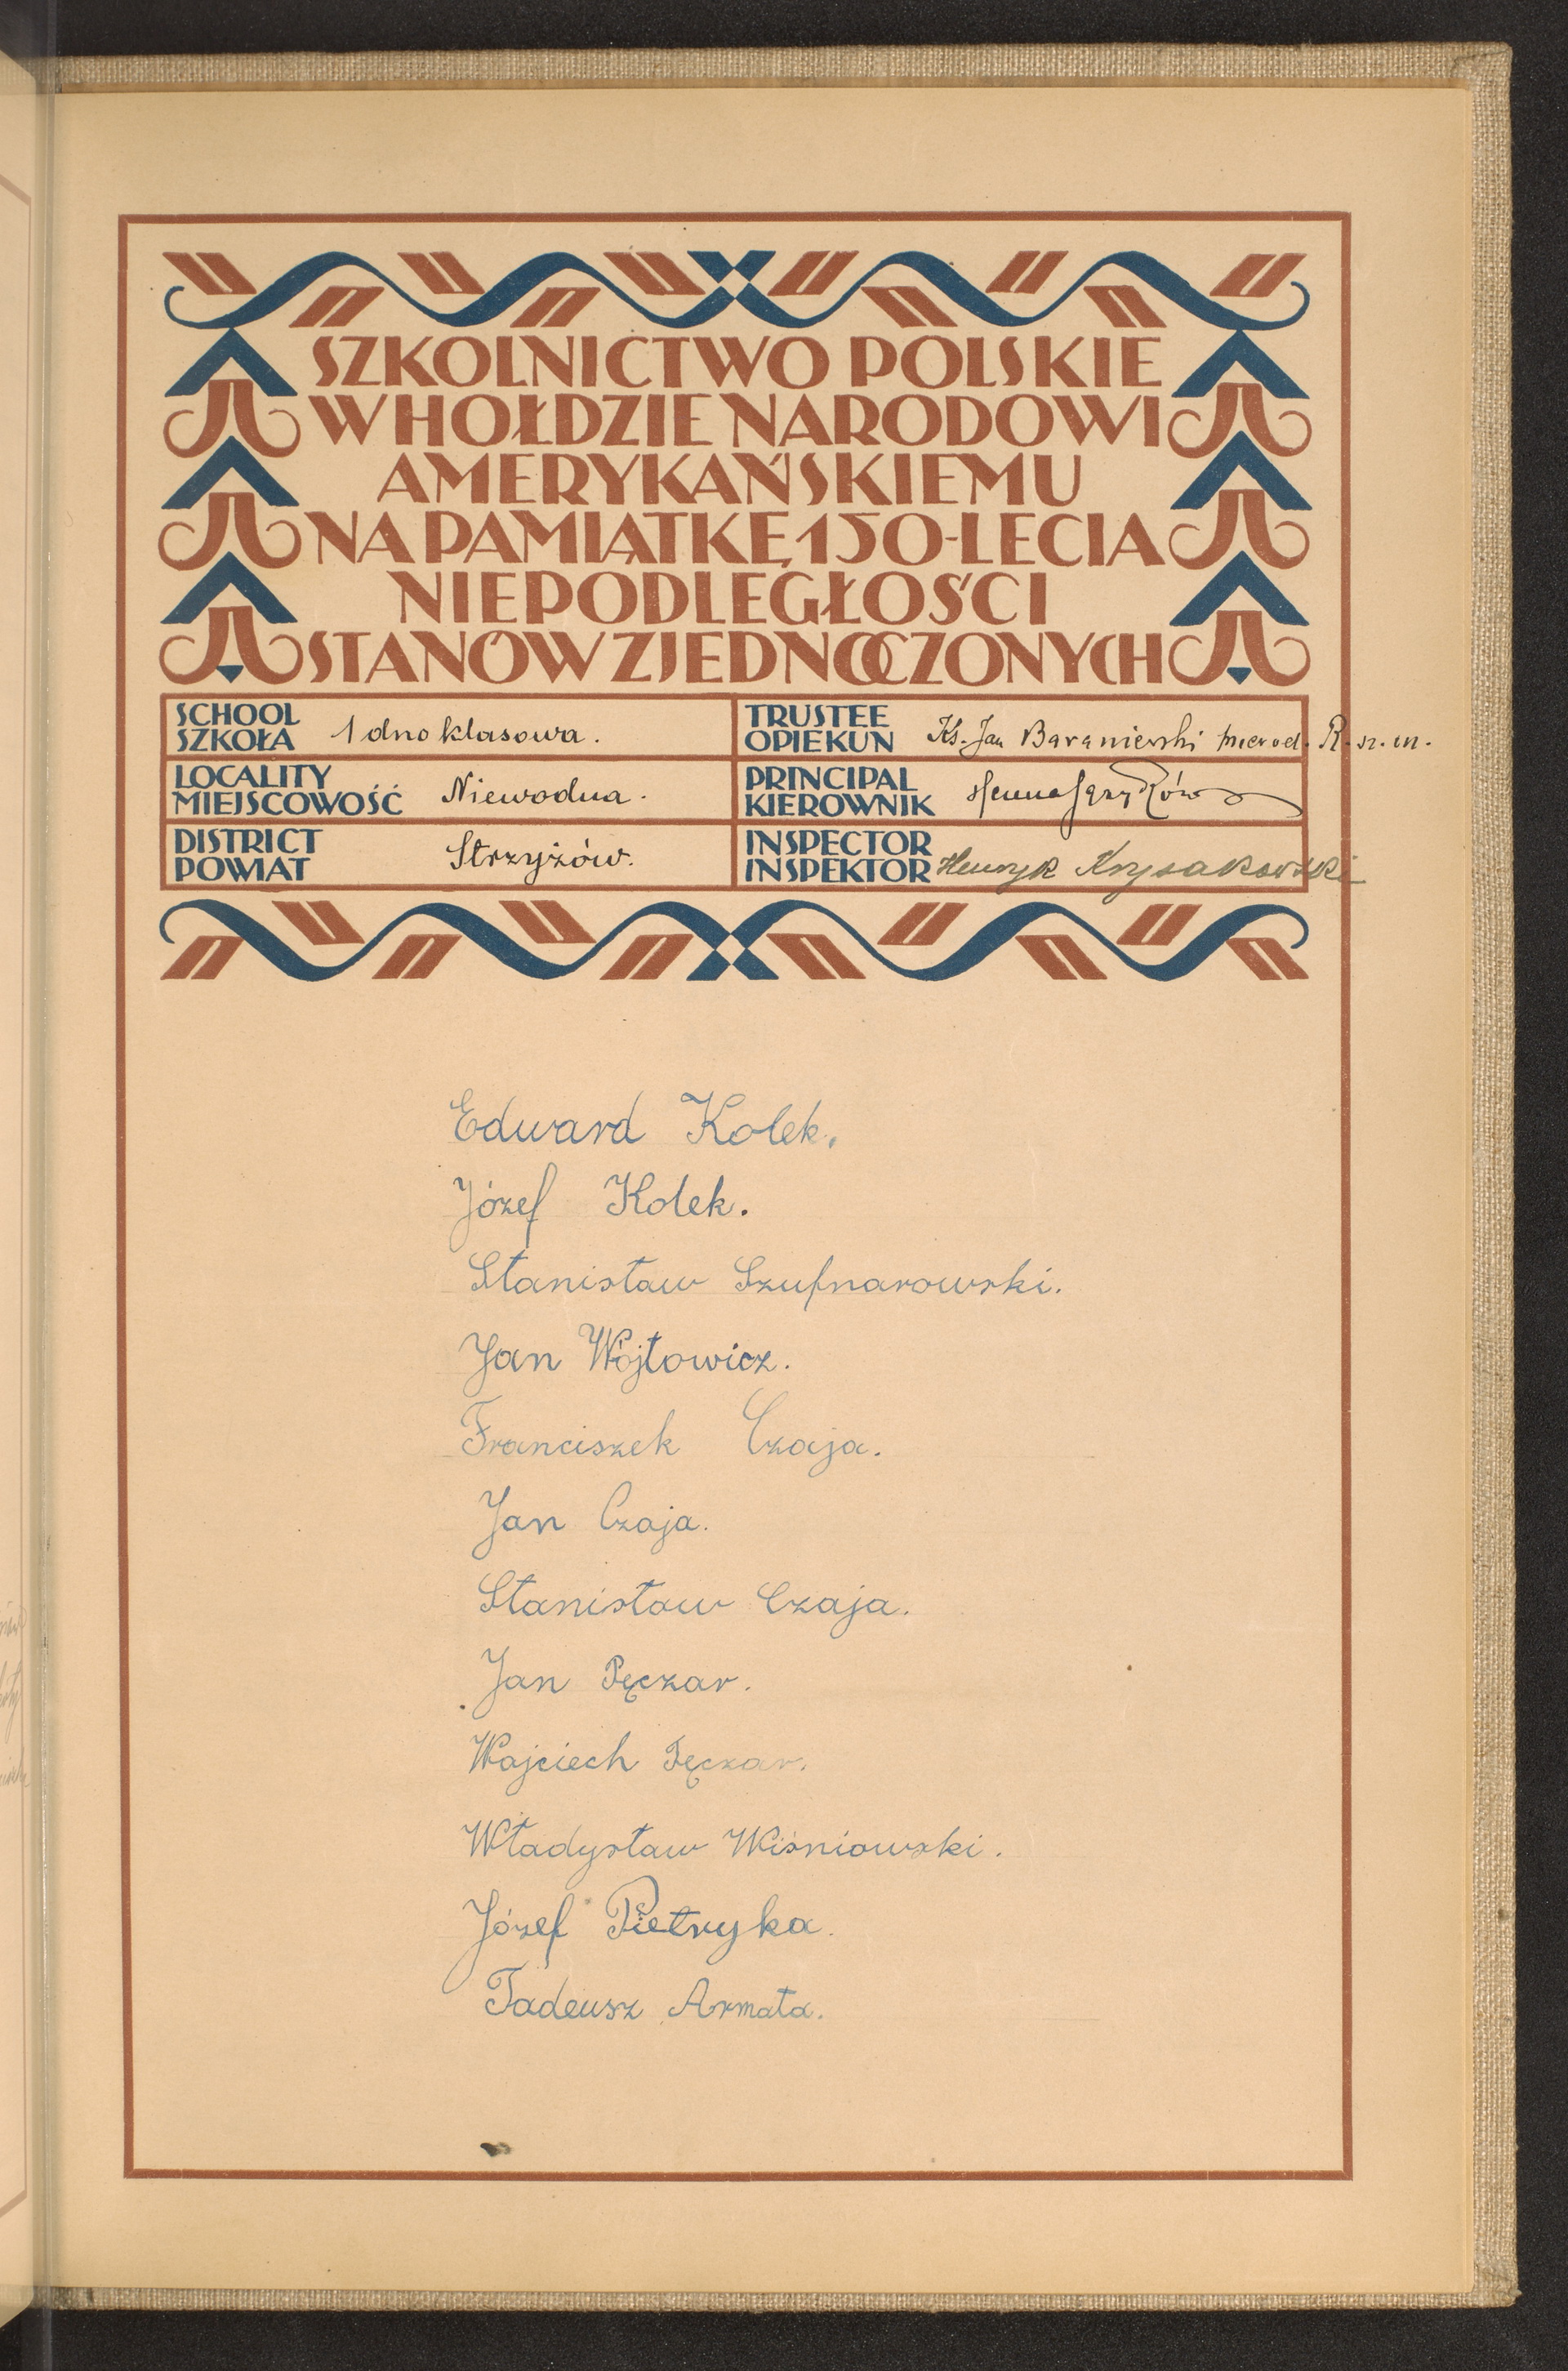 SZKOLNICTWO POLSKIE
W HOŁDZIE NARODOWI
AMERYKAŃSKIEMU
NA PAMIĄTKĘ 150-LECIA
NIEPODLEGŁOŚCI
STANÓW ZJEDNOCZONYCH
SCHOOL
SZKOŁA 1dno klasowa.
TRUSTEE
OPIEKUN Ks. Jan Baraniewski R. sz. m.
LOCALITY
MIEJSCOWOŚĆ Niewodna.
PRINCIPAL
KIEROWNIK
DISTRICT
POWIAT Strzyżów.
INSPECTOR
INSPEKTOR Henryk Krysakowski
Edward Kolek.
Józef Kolek.
Stanisław Szufnarowski.
Jan Wójtowicz.
Franciszek Czaja.
Jan Czaja.
Stanisław Czaja.
Jan Pęczar.
Wojciech Pęczar.
Władysław Wiśniowski.
Józef Pietryka.
Tadeusz Armata.